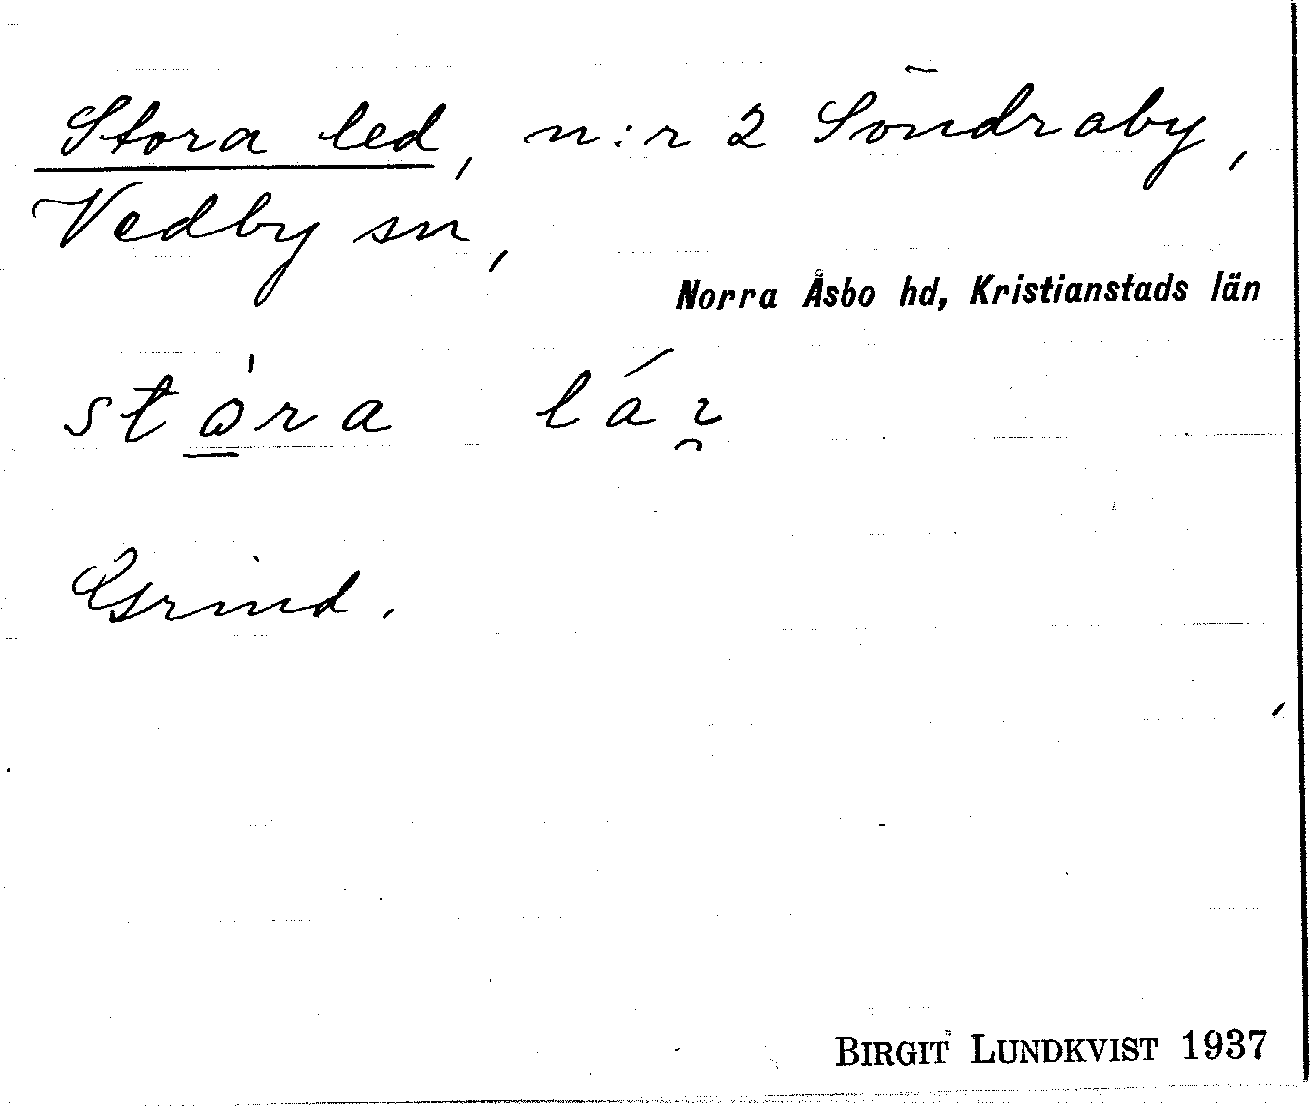 Stora led, n:r 2 Söndraby,
Vedby sn,
Norra Åsbo hd, Kristianstads län
Grind.
BIRGIT LUNDKVIST 1937